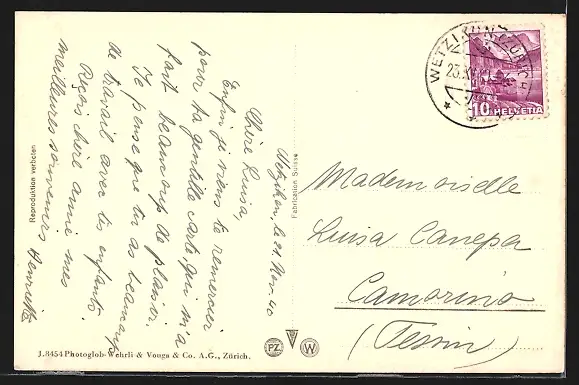 Wetzikon, le 21. Nov. 40
Chère Luisa,
Enfin je viens te remercier
pour ta gentille carte, qui m'a
fait beaucoup de plaisir.
Je pense que tu as beaucoup
de travail avec tes enfants.
Reçois chère amie mes
meilleurs souvenirs Henriette
Reproduktion verboten
Fabrication Suisse
J.8454 Photoglob-Wehrli & Vouga & Co. A.G., Zürich.
PZ
W
WETZIKON (ZÜRICH)
10 HELVETIA
Mademoiselle
Luisa Canepa
Camorino
(Tessin)